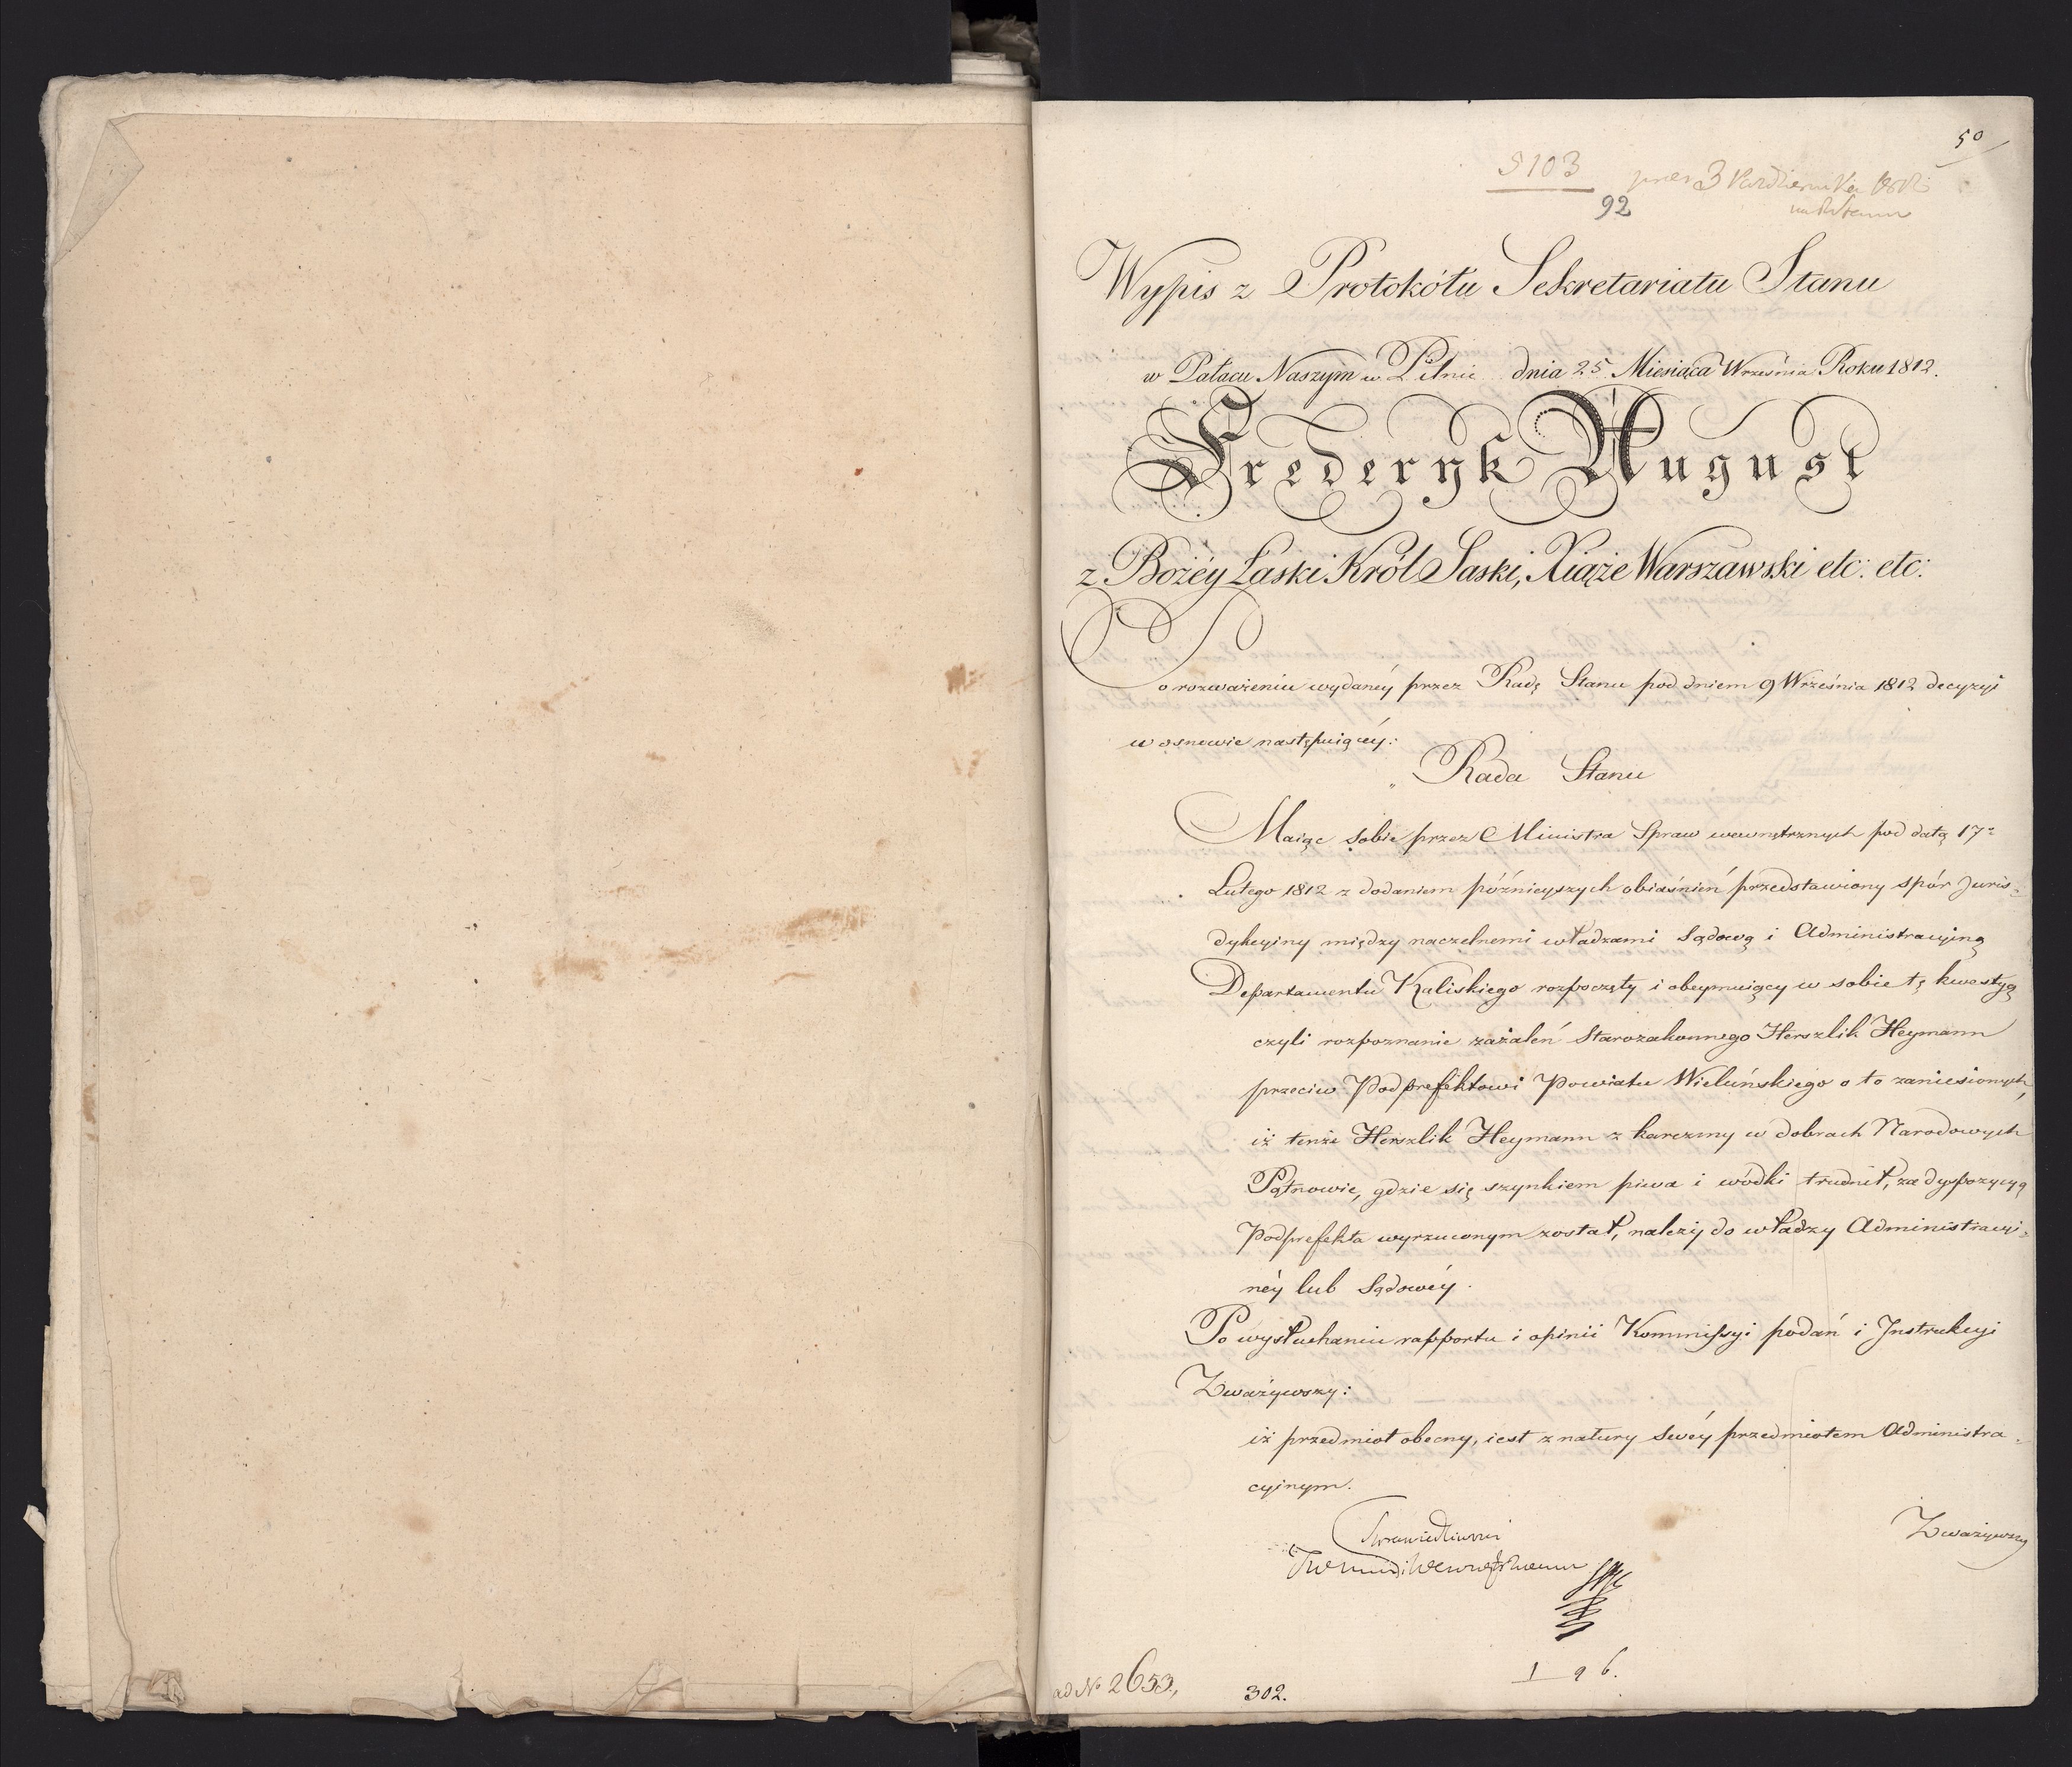 50
5103 3 Października
92
Wypis z Protokółu Sekretariatu Stanu
w Pałacu Naszym w Pilnic dnia 25 Miesiąca Września Roku 1812.
Fryderyk August
z Bożéy Łaski Król Saski, Xiąże Warszawski etc: etc:
Po rozważeniu wydanéy przez Radę Stanu pod dniem 9 Września 1812 decyzyi
w osnowie następuiącéy:
„ Rada Stanu
Maiąc sobie przez Ministra Spraw wewnętrznych pod datą 17º
Lutego 1812 z dodaniem późnieyszych obiaśnień przedstawiony spór Juris-
dykcyiny między naczelnemi władzami Sądową i Administracyiną
Departamentu Kaliskiego rozpoczęty i obeymuiący w sobie tę kwestyą
czyli rozpoznanie zażaleń Starozakonnego Herszlik Heymann
przeciw Podprefektowi Powiatu Wieluńskiego o to zaniesionych,
iż tenże Herszlik Heymann z karczmy w dobrach Narodowych
Pątnowie, gdzie się szynkiem piwa i wódki trudnił, za dyspozycyą
Podprefekta wyrzuconym został, należy do władzy Administracyi-
néy lub Sądowéy.
Po wysłuchaniu rapportu i opinii Kommissyi podań i Instrukcyi
Zważywszy:
iż przedmiot obecny, iest z natury swéy przedmiotem Administra-
cyinym.
Zważywszy
ad Nº 2653.,
302.
196.